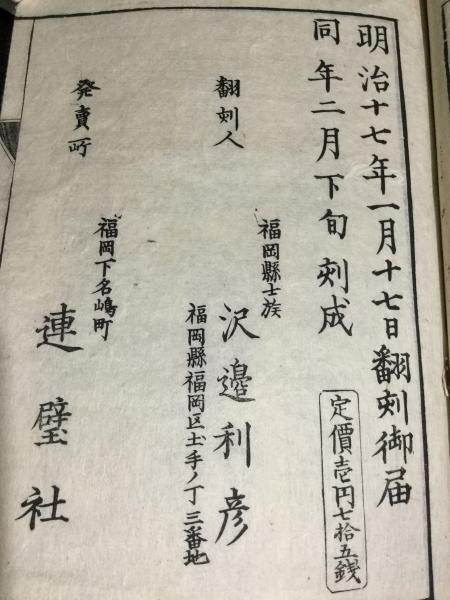 明治十七年一月十七日翻刻御届
同年二月下旬刻成
定價壱円七拾五銭
翻刻人
福岡縣士族
沢邉利彦
福岡縣福岡区土手ノ丁三番地
発賣所
福岡下名嶋町
連璧社